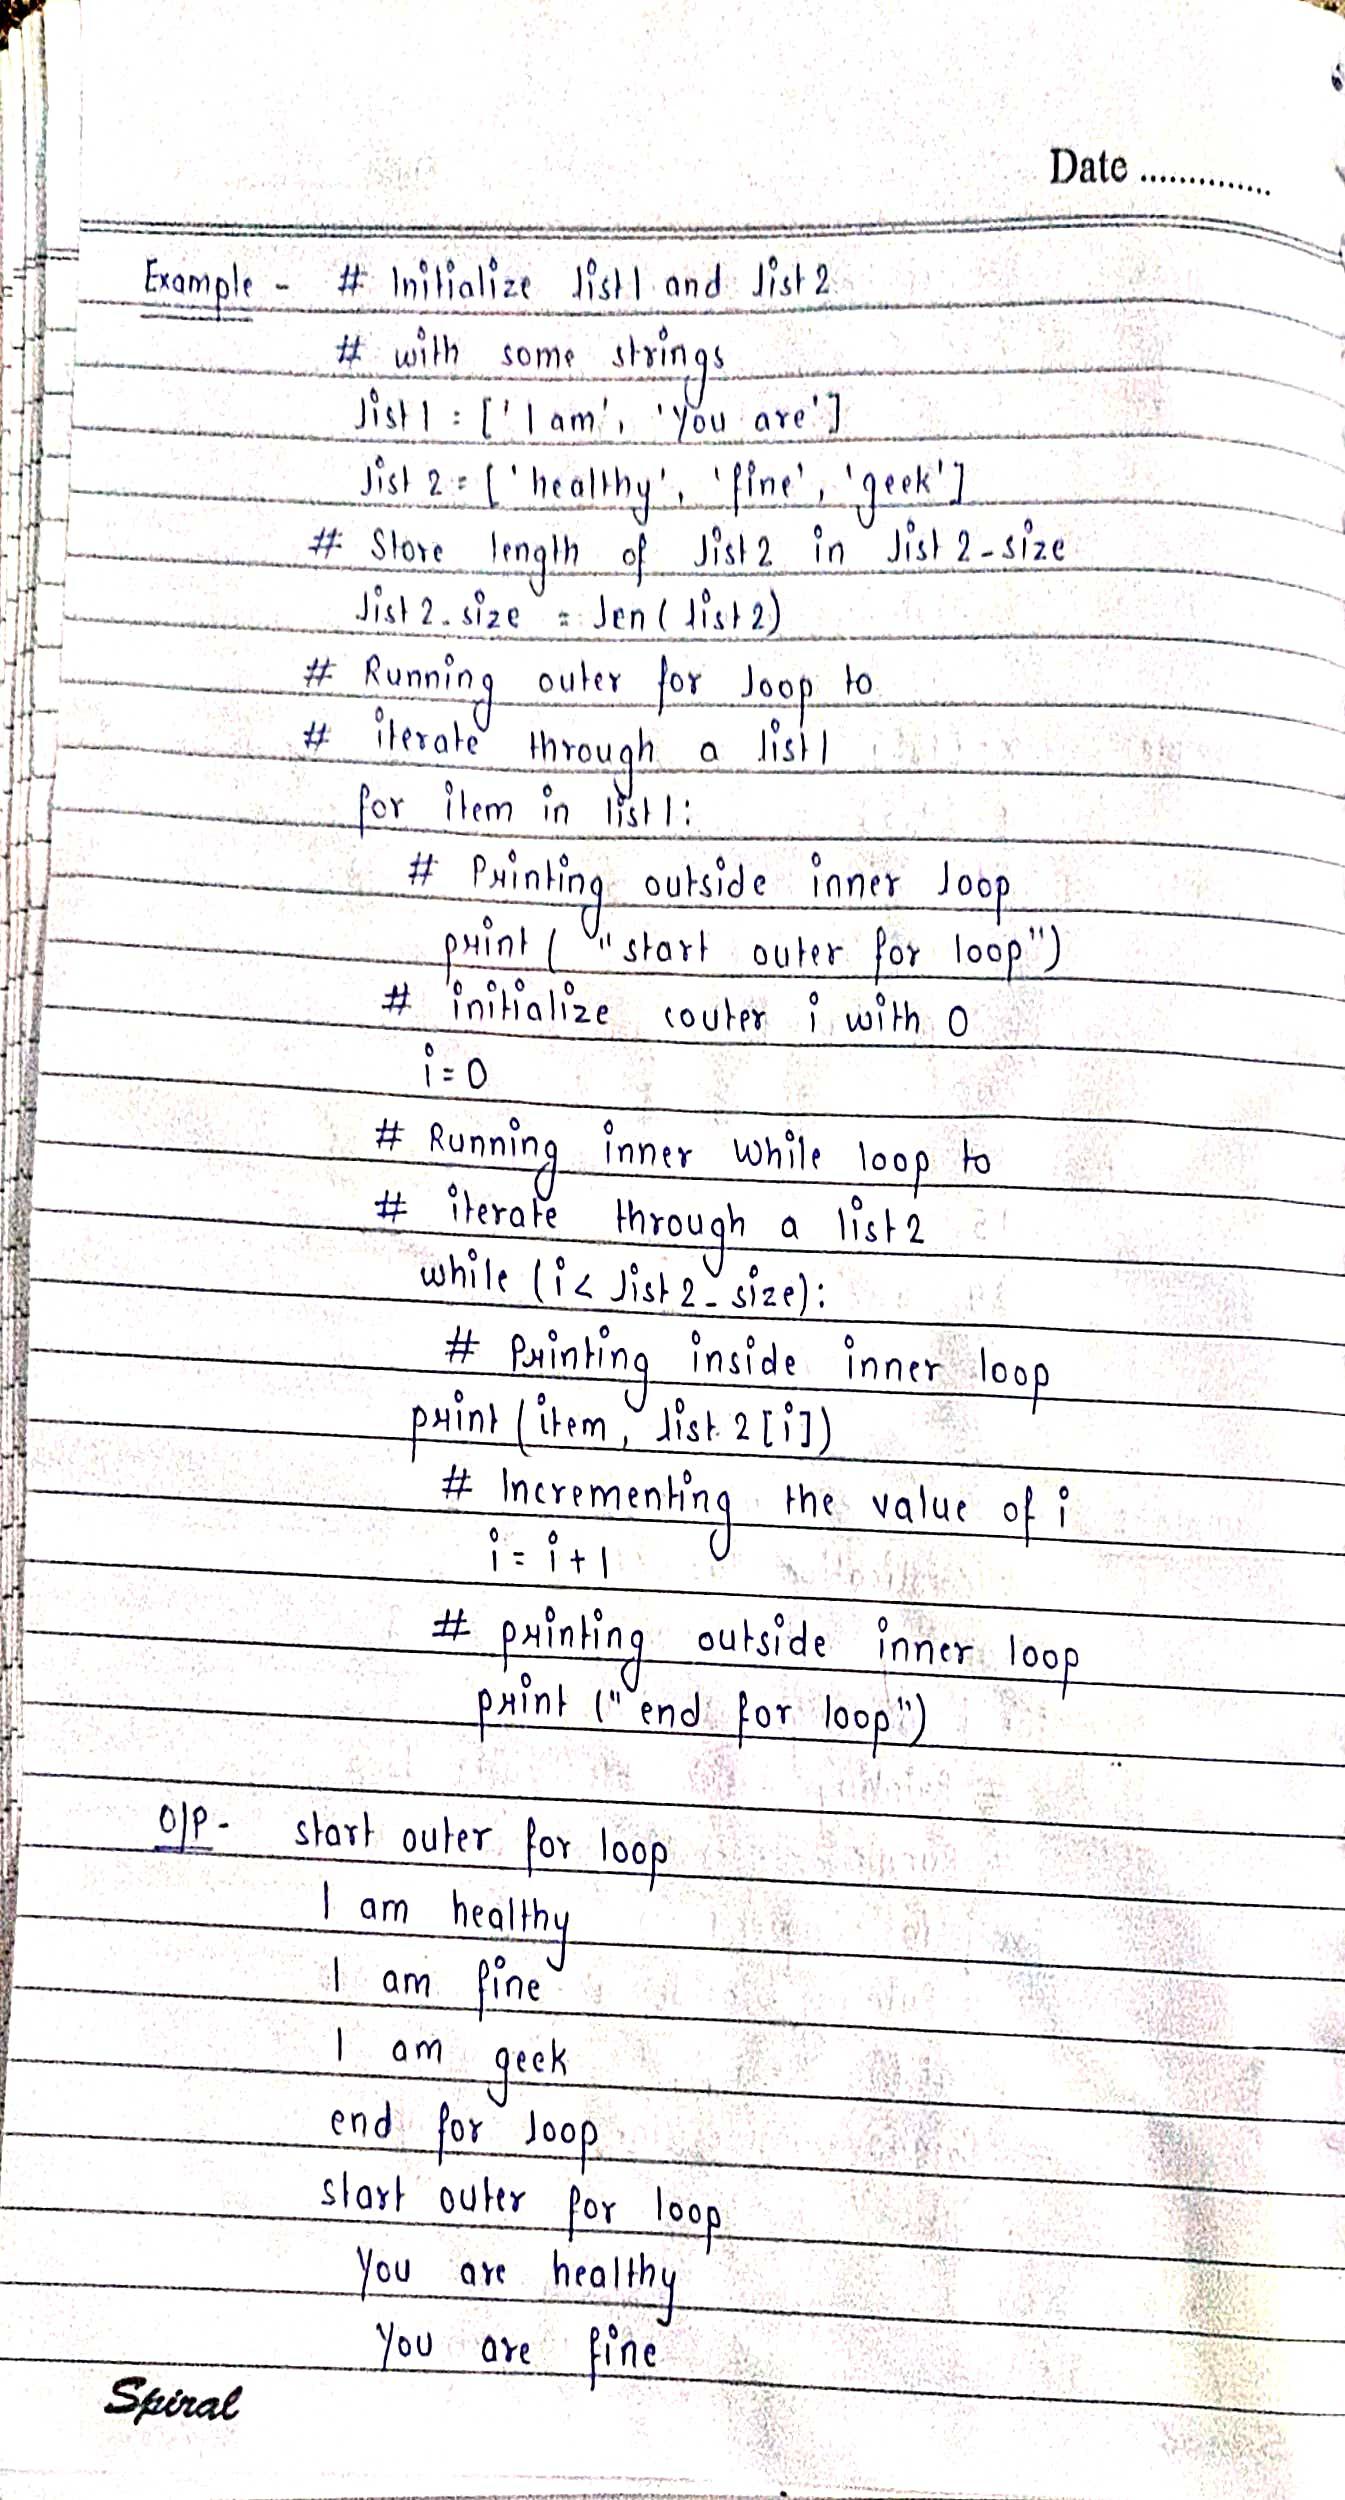 Date ..............
Example - # Initialize list1 and list2
# with some strings
list1 = ['I am', 'You are']
list2 = ['healthy', 'fine', 'geek']
# Store length of list2 in list2_size
list2_size = len(list2)
# Running outer for loop to
# iterate through a list1
for item in list1:
# Printing outside inner loop
print("start outer for loop")
# initialize couter i with 0
i=0
# Running inner while loop to
# iterate through a list2
while (i< list2_size):
# Printing inside inner loop
print(item, list2[i])
# Incrementing the value of i
i = i+1
# printing outside inner loop
print("end for loop")
O/P - start outer for loop
I am healthy
I am fine
I am geek
end for loop
start outer for loop
You are healthy
You are fine
Spiral